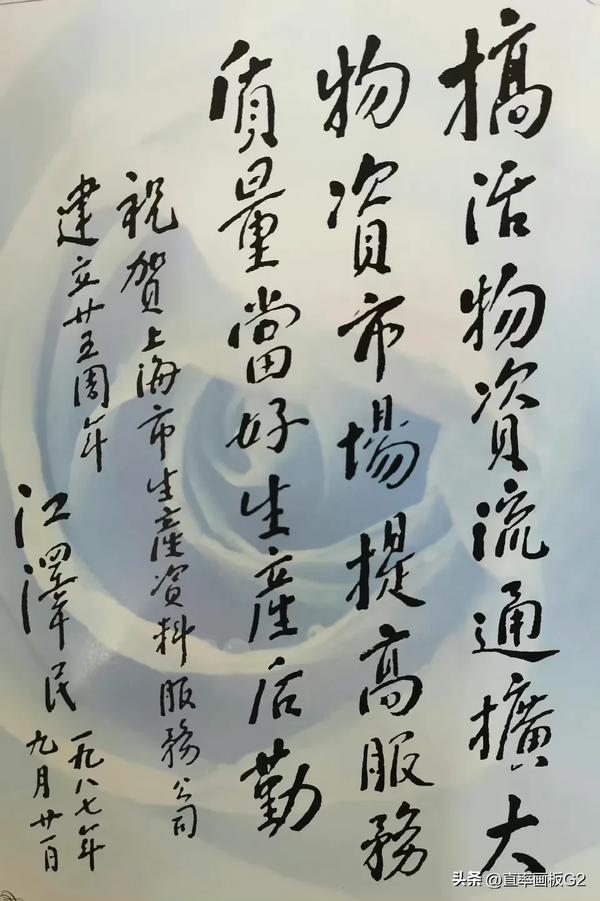 搞活物資流通擴大
物資市場提高服務
質量當好生産后勤
祝賀上海市生産資料服務公司
建立廿五周年
江澤民
一九八七年
九月廿一日
头条@直率画板G2